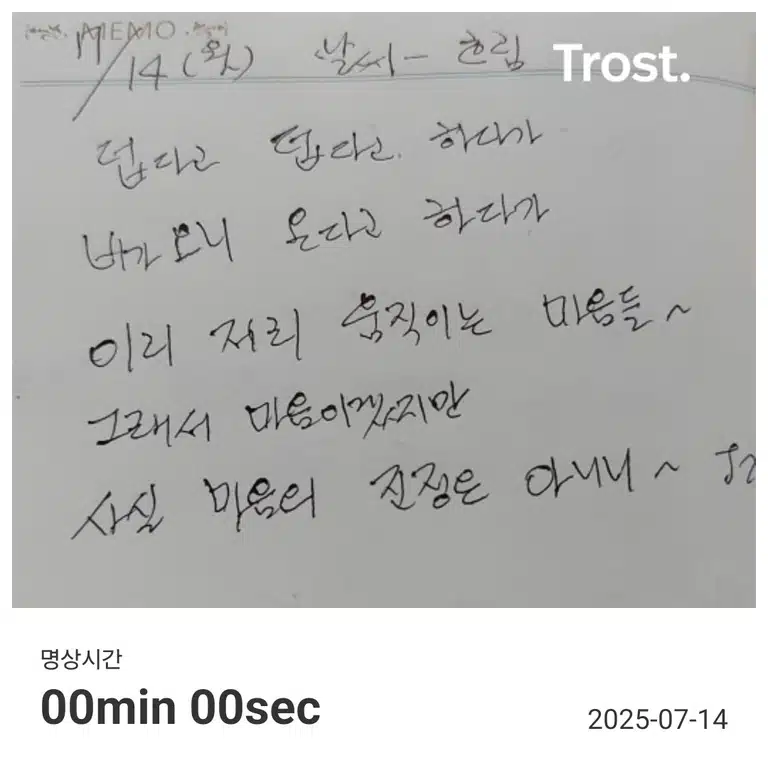 MEMO
7/14 (월) 날씨 - 흐림
Trost.
덥다고 덥다고 하다가
비가 오니 온다고 하다가
이리 저리 움직이는 마음들 ~
그래서 마음이겠지만
사실 마음의 진정은 아니니 ~
명상시간
00min 00sec
2025-07-14